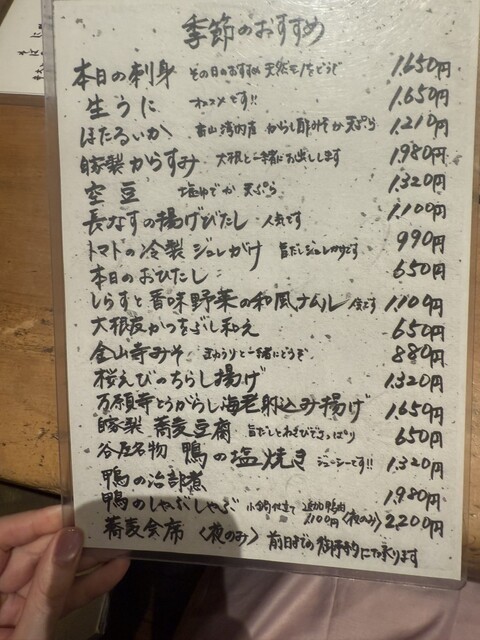 季節のおすすめ
本日の刺身 その日のおすすめ 天然モノをどうぞ 1,650円
生うに オススメです!! 1,650円
ほたるいか 富山湾内産 からし酢みそか天ぷら 1,210円
自家製からすみ 大根と一緒にお出しします 1,980円
空豆 塩ゆでか天ぷら 1,320円
長なすの揚げびたし 人気です 1,100円
トマトの冷製ジュレがけ 旨だしジュレがけです 990円
本日のおひたし 650円
しらすと香味野菜の和風ナムル 人気です 1,100円
大根皮かつをぶし和え 650円
金山寺みそ きゅうりと一緒にどうぞ 880円
桜えびのちらし揚げ 1,320円
万願寺とうがらし海老射込み揚げ 1,650円
自家製 蕎麦豆腐 旨だしとわさびでさっぱり 650円
名物 鴨の塩焼き ジューシーです!! 1,320円
鴨の治部煮 1,980円
鴨のしゃぶしゃぶ 小鍋仕立て 追加鴨肉 1,100円 〈夜のみ〉 2,200円
蕎麦会席 〈夜のみ〉 前日までの御予約にて承ります